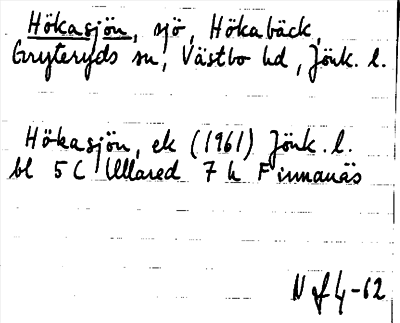 Hökasjön, sjö, Hökabäck,
Gryteryds sn, Västbo hd, Jönk. l.
Hökasjön, ek (1961) Jönk. l.
bl 5 C Ullared 7 h Finnanäs
N of 4-62